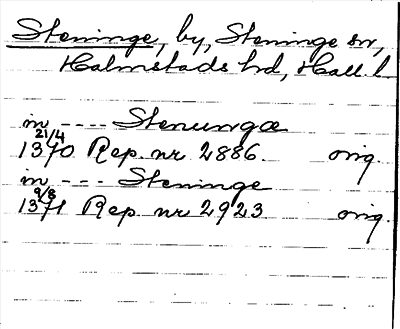 Steninge, by, Steninge sn,
Halmstads hd, Hall. l.
in ---- Stenunga
21/4
1370 Rep. nr 2886. orig.
in --- Steninge
9/8
1371 Rep. nr 2923 orig.